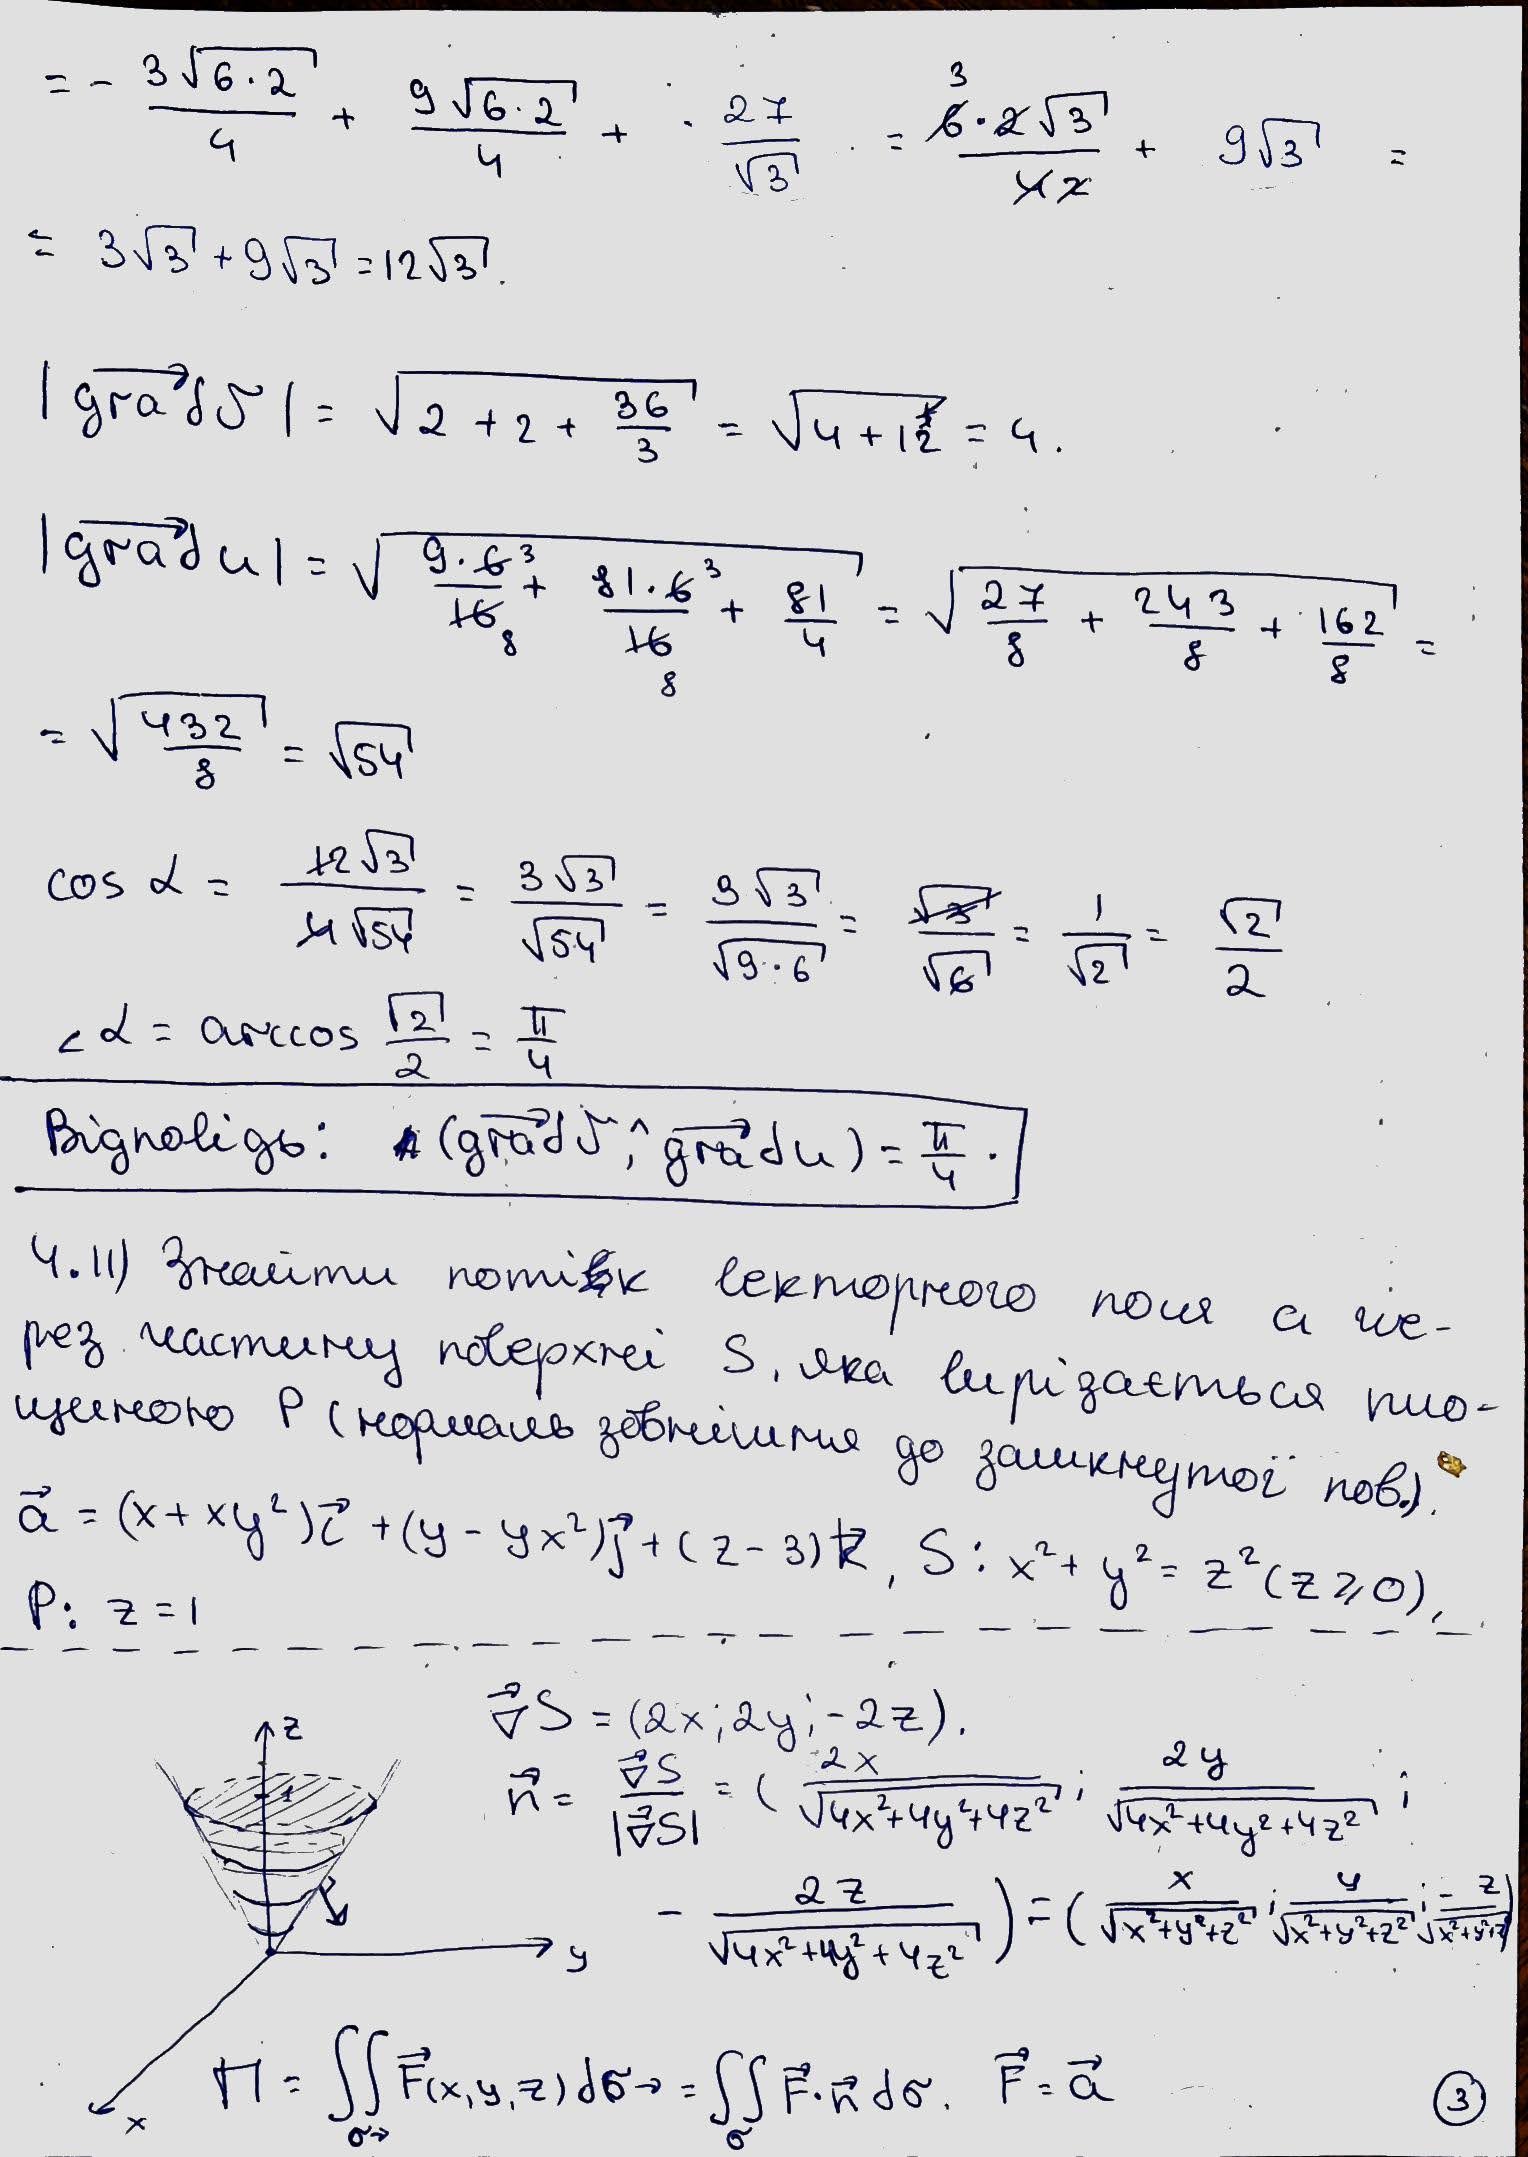 = - 3√(6·2)/4 + 9√(6·2)/4 + · 27/√3 = 6·2√3/4 + 9√3 =
= 3√3 + 9√3 = 12√3.
|grad v| = √(2 + 2 + 36/3) = √(4 + 12) = 4.
|grad u| = √(9·6/16 + 81·6/16 + 81/4) = √(27/8 + 243/8 + 162/8) =
= √(432/8) = √54
cos α = 12√3/4√54 = 3√3/√54 = 3√3/√(9·6) = √3/√6 = 1/√2 = √2/2
∠α = arccos √2/2 = π/4
Відповідь: (grad v ,^ grad u) = π/4.
4.11) Знайти потік векторного поля a че-
рез частину поверхні S, яка вирізається пло-
щиною P (нормаль зовнішня до замкнутої пов.).
a⃗ = (x + xy²)i⃗ + (y - yx²)j⃗ + (z - 3)k⃗, S: x² + y² = z² (z ≥ 0),
P: z = 1
∇⃗S = (2x; 2y; -2z).
n⃗ = ∇⃗S/|∇⃗S| = (2x/√(4x²+4y²+4z²); 2y/√(4x²+4y²+4z²);
- 2z/√(4x²+4y²+4z²)) = (x/√(x²+y²+z²); y/√(x²+y²+z²); - z/√(x²+y²+z²))
z
1
y
x
П = ∬σ→ F⃗(x,y,z)dσ→ = ∬σ F⃗·n⃗ dσ. F⃗ = a⃗
3